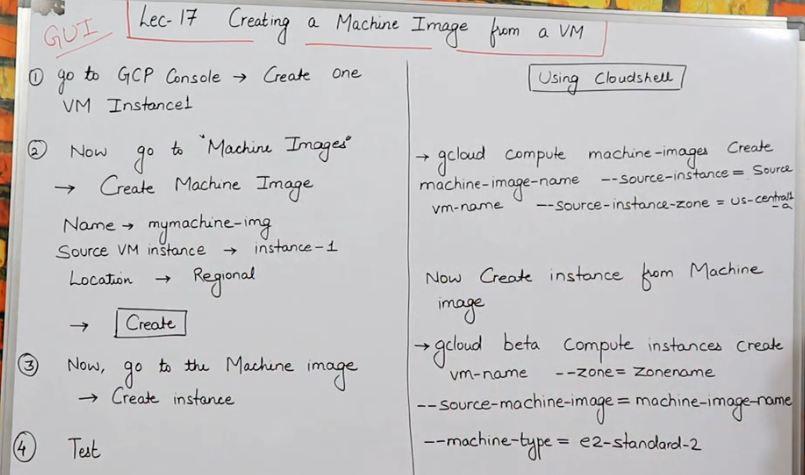 GUI
Lec-17 Creating a Machine Image from a VM
① go to GCP Console → Create one
VM Instance1
② Now go to "Machine Images"
→ Create Machine Image
Name → mymachine-img
Source VM instance → instance-1
Location → Regional
→ Create
③ Now, go to the Machine image
→ Create instance
④ Test
Using Cloudshell
→ gcloud compute machine-images Create
machine-image-name --source-instance = Source
vm-name --source-instance-zone = us-central1
-a
Now Create instance from Machine
image
→ gcloud beta Compute instances create
vm-name --zone = zonename
--source-machine-image = machine-image-name
--machine-type = e2-standard-2